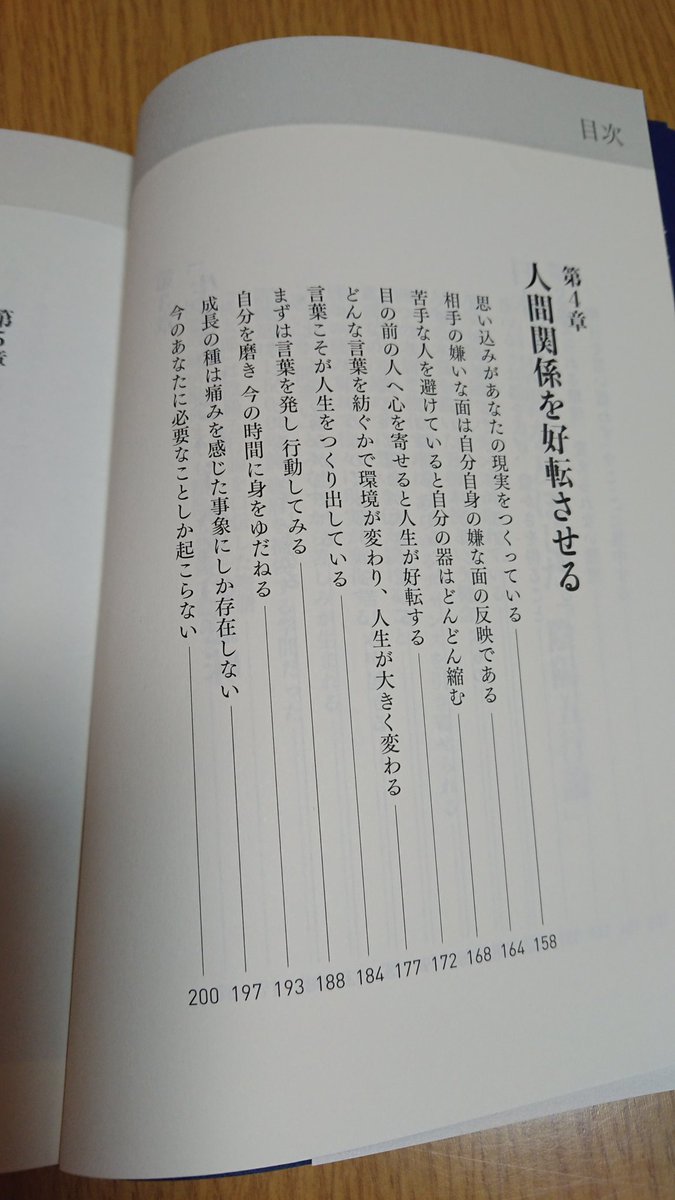 目次
第4章
人間関係を好転させる
思い込みがあなたの現実をつくっている 158
相手の嫌いな面は自分自身の嫌な面の反映である 164
苦手な人を避けていると自分の器はどんどん縮む 168
目の前の人へ心を寄せると人生が好転する 172
どんな言葉を紡ぐかで環境が変わり、人生が大きく変わる 177
言葉こそが人生をつくり出している 184
まずは言葉を発し 行動してみる 188
自分を磨き 今の時間に身をゆだねる 193
成長の種は痛みを感じた事象にしか存在しない 197
今のあなたに必要なことしか起こらない 200
第5章